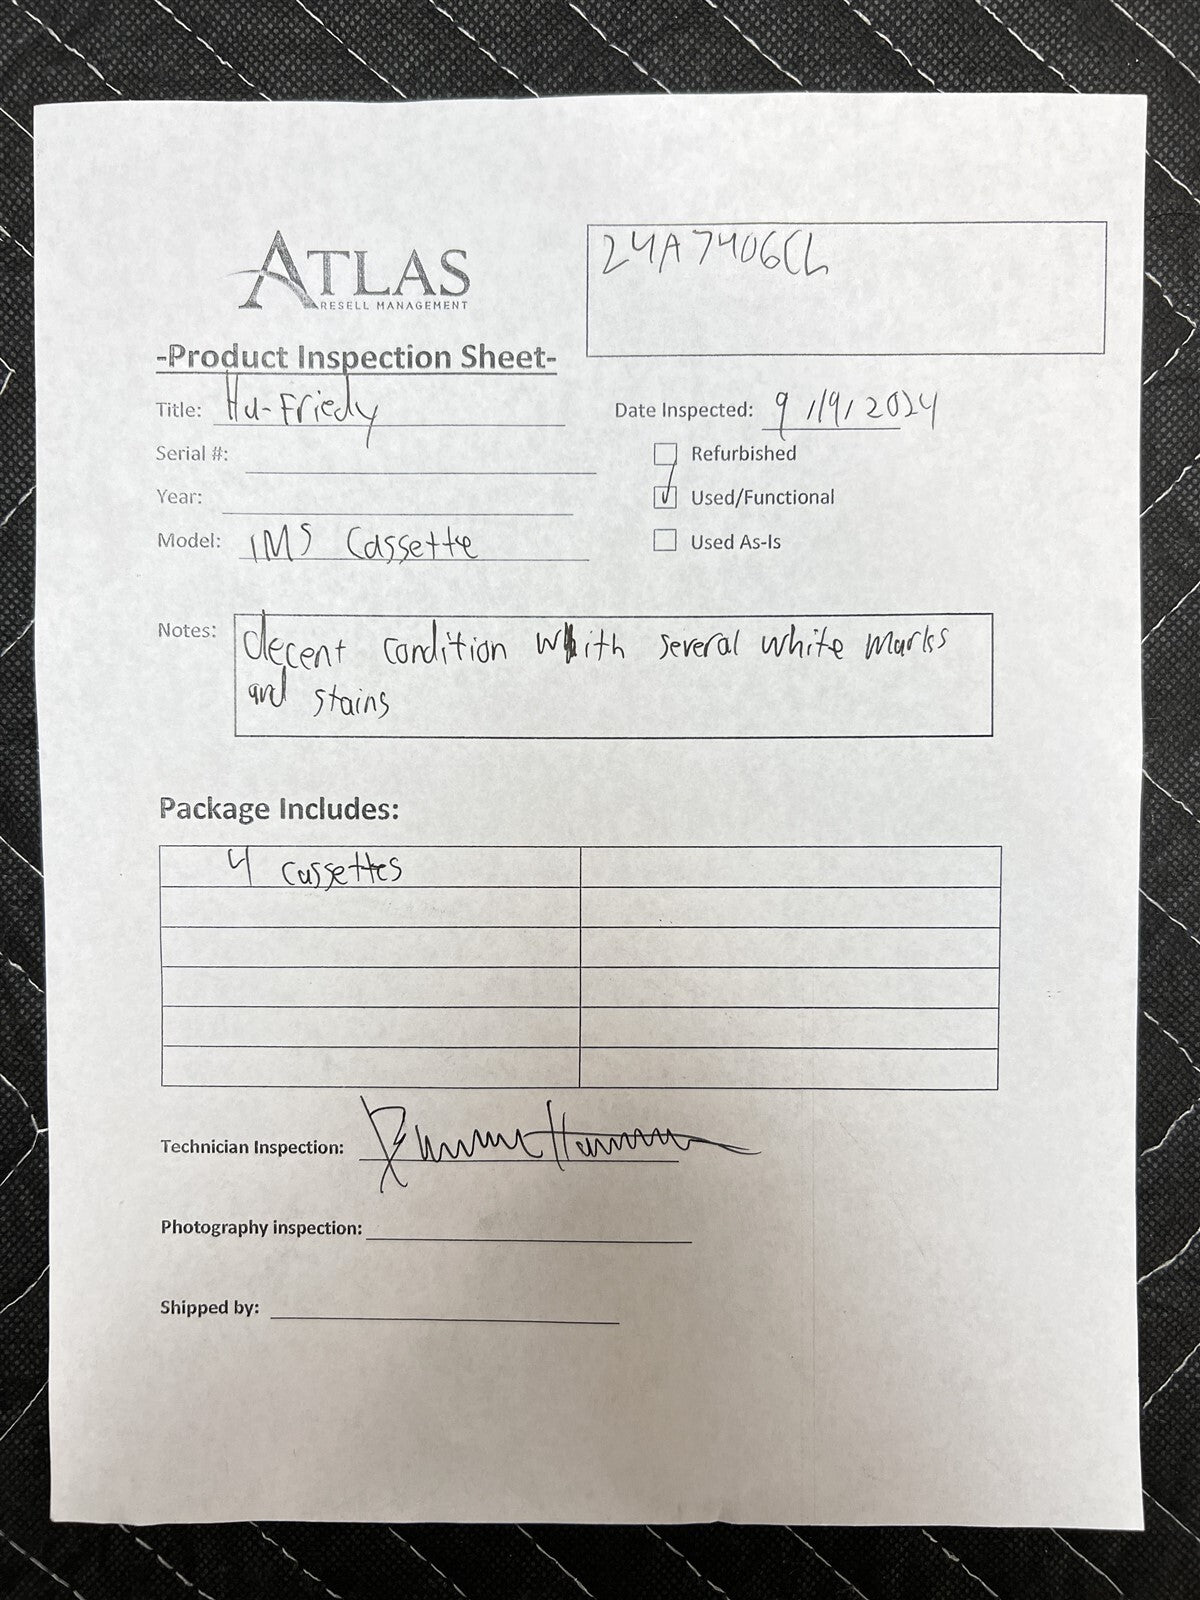 24A7406CL
ATLAS
RESELL MANAGEMENT
-Product Inspection Sheet-
Title: Hu-Friedy
Date Inspected: 9/19/2024
Serial #:
Refurbished
Year:
Used/Functional
Model: IMS Cassette
Used As-Is
Notes: decent condition with several white marks
and stains
Package Includes:
4 Cassettes
Technician Inspection:
Photography inspection:
Shipped by: